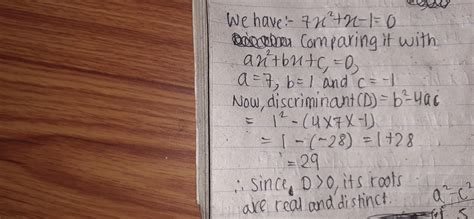 We have:- 7x²+x-1=0
Comparing it with
ax²+bx+c,=0,
a=7, b=1 and c=-1
Now, discriminant(D)=b²-4ac
= 1² - (4x7x-1)
= 1 - (-28) = 1+28
= 29
∴ Since, D>0, its roots
are real and distinct.
a²-c²